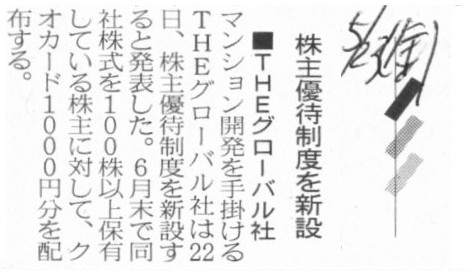 5/23(金)
株主優待制度を新設
■THEグローバル社
マンション開発を手掛ける
THEグローバル社は22
日、株主優待制度を新設す
ると発表した。6月末で同
社株式を100株以上保有
している株主に対して、ク
オカード1000円分を配
布する。